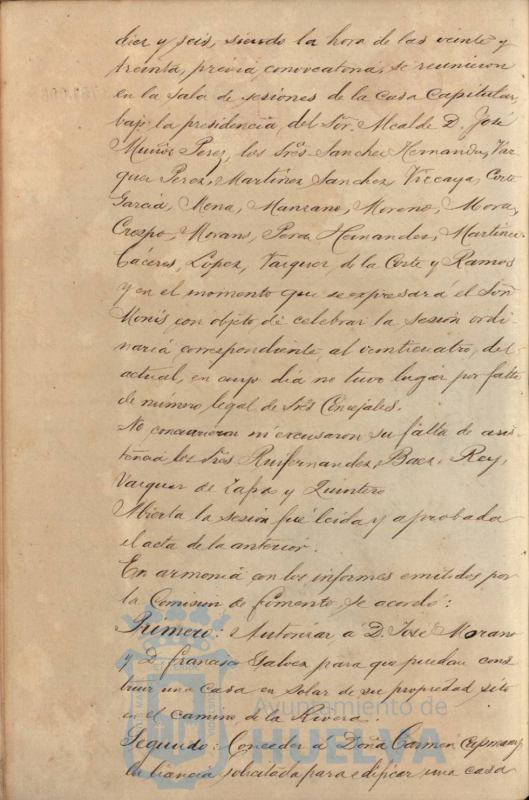 diez y seis, siendo la hora de las veinte y
treinta, previa convocatoria, se reunieron
en la sala de sesiones de la casa Capitular,
bajo la presidencia del Sor. Alcalde D. José
Muñoz Perez, los Sres. Sanchez Hernandez, Váz-
quez Perez, Martinez Sanchez, Vizcaya, Corte
Garcia, Mena, Manzano, Moreno, Mora,
Crespo, Morano, Perez Hernandez, Martinez
Cáceres, López, Vazquez de la Corte y Ramos
y en el momento que se expresará el Sor.
Monis con objeto de celebrar la sesión ordi-
naria correspondiente al veinticuatro del
actual, en cuyo dia no tuvo lugar por falta
de número legal de Sres Concejales.
No concurrieron ni excusaron su falta de asis-
tencia los Sres Ruifernandez, Baez, Rey,
Vazquez de Zafra y Quintero
Abierta la sesión fué leida y aprobada
el acta de la anterior.
En armonia con los informes emitidos por
la Comision de fomento se acordó:
Primero: Autorizar á D. José Morano
y D. Francisco Galvez para que puedan cons-
truir una casa en solar de su propiedad sito
en el camino de la Rivera.
Segundo: Conceder á Doña Carmen
la licencia solicitada para edificar una casa
Ayuntamiento de
HUELVA